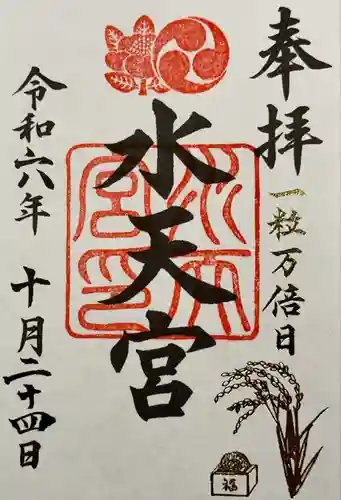 奉拝
一粒万倍日
水天宮
水天宮印
令和六年
十月二十四日
福